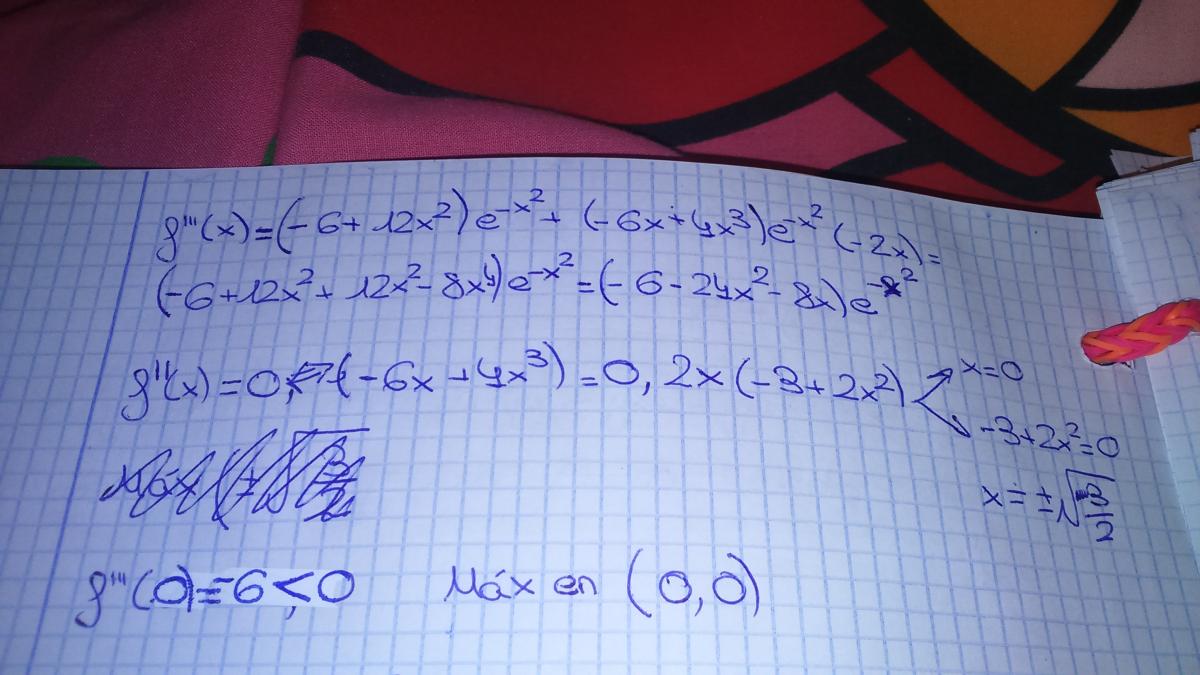 f'''(x) = (-6 + 12x²) e^-x² + (-6x + 4x³) e^-x² (-2x) =
(-6 + 12x² + 12x² - 8x⁴) e^-x² = (-6 - 24x² - 8x) e^-x²
f''(x) = 0, ⇔ (-6x + 4x³) = 0, 2x (-3 + 2x²)
x = 0
-3 + 2x² = 0
x = ± √3/2
f'''(0) = 6 < 0 Máx en (0,0)